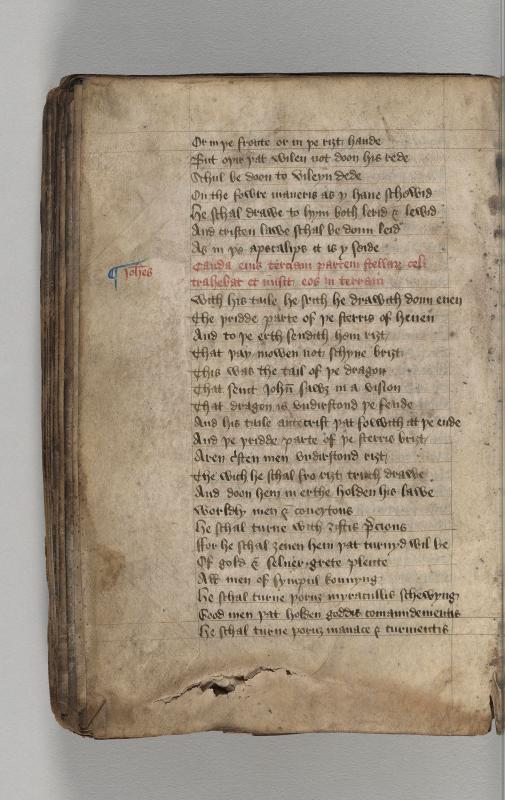 Or in þe fronte or in þe riȝt hande
But oþir þat wilen not doon his rede
Schul be doon to vileyn dede
On the fowre maneris as y haue schowid
He schal drawe to hym both lerid & lewid
And cristen lawe schal be doun leid
As in þe apocalips it is y seide
¶ Joħes
Cauda eius terciam partem stellarꝝ celi
trahebat et misit eos in terram
With his taile he seith he drawith doun euen
The þridde parte of þe sterris of heuen
And to þe erth sendith hem riȝt
That þay mowen not schyne briȝt
This was the tail of þe dragon
That seint Joħn sawȝ in a vision
That dragon is vndirstond þe fende
And his taile antecrist þat folwith at þe ende
And þe þridde parte of þe sterris briȝt
Aren cͥsten men vndirstond riȝt
The wich he schal fro riȝt trouth drawe
And doon hem in erthe holden his lawe
Worldly men & coueytous
He schal turne with ȝiftis p̄cious
Ffor he schal ȝeuen hem þat turnyd wil be
Of gold & seluer grete plente
All men of sympul konnyng
He schal turne þoruȝ myracullis schewyng
Good men þat holden goddis comaundementis
He schal turne þoruȝ manace & turmentis